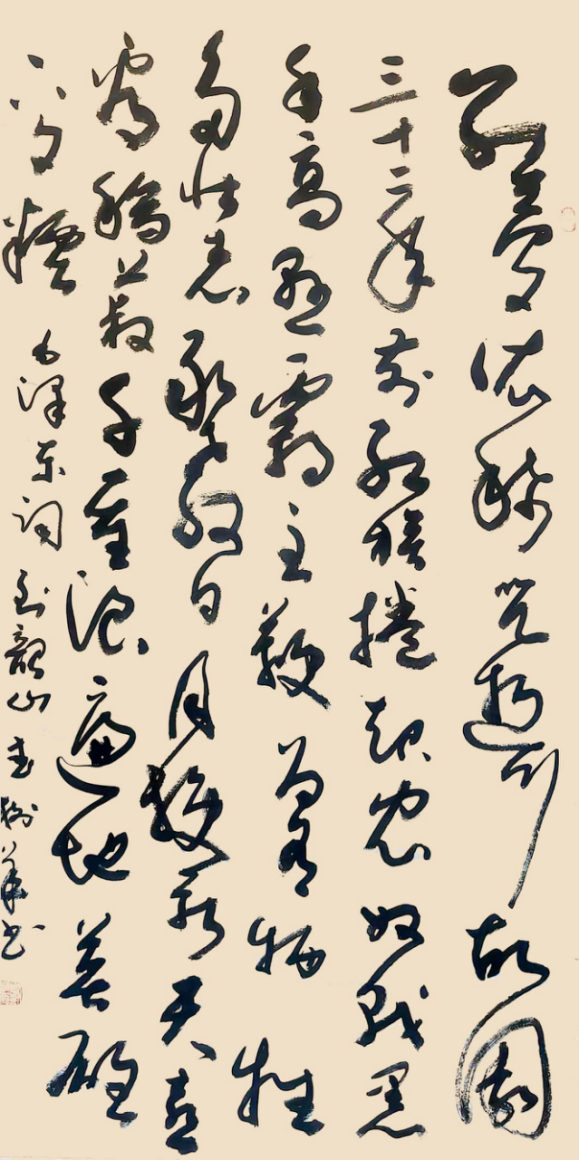 别夢依稀咒逝川故園
三十二年前红旗捲起农奴戟黑
手高悬霸主鞭为有牺牲
多壮志敢教日月换新天喜
看稻菽千重浪遍地英雄
下夕煙 毛泽东词 到韶山 书